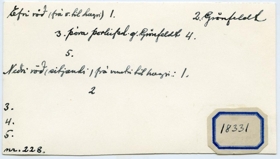 Efri röð (frá v. til hægri) 1. 2. Grönfeldt
3. Þóra Þorleifsd. Grönfeldt 4.
5.
Neðri röð (sitjandi) frá vinstri til hægri: 1.
2
3.
4.
5.
nr. 228.
18331